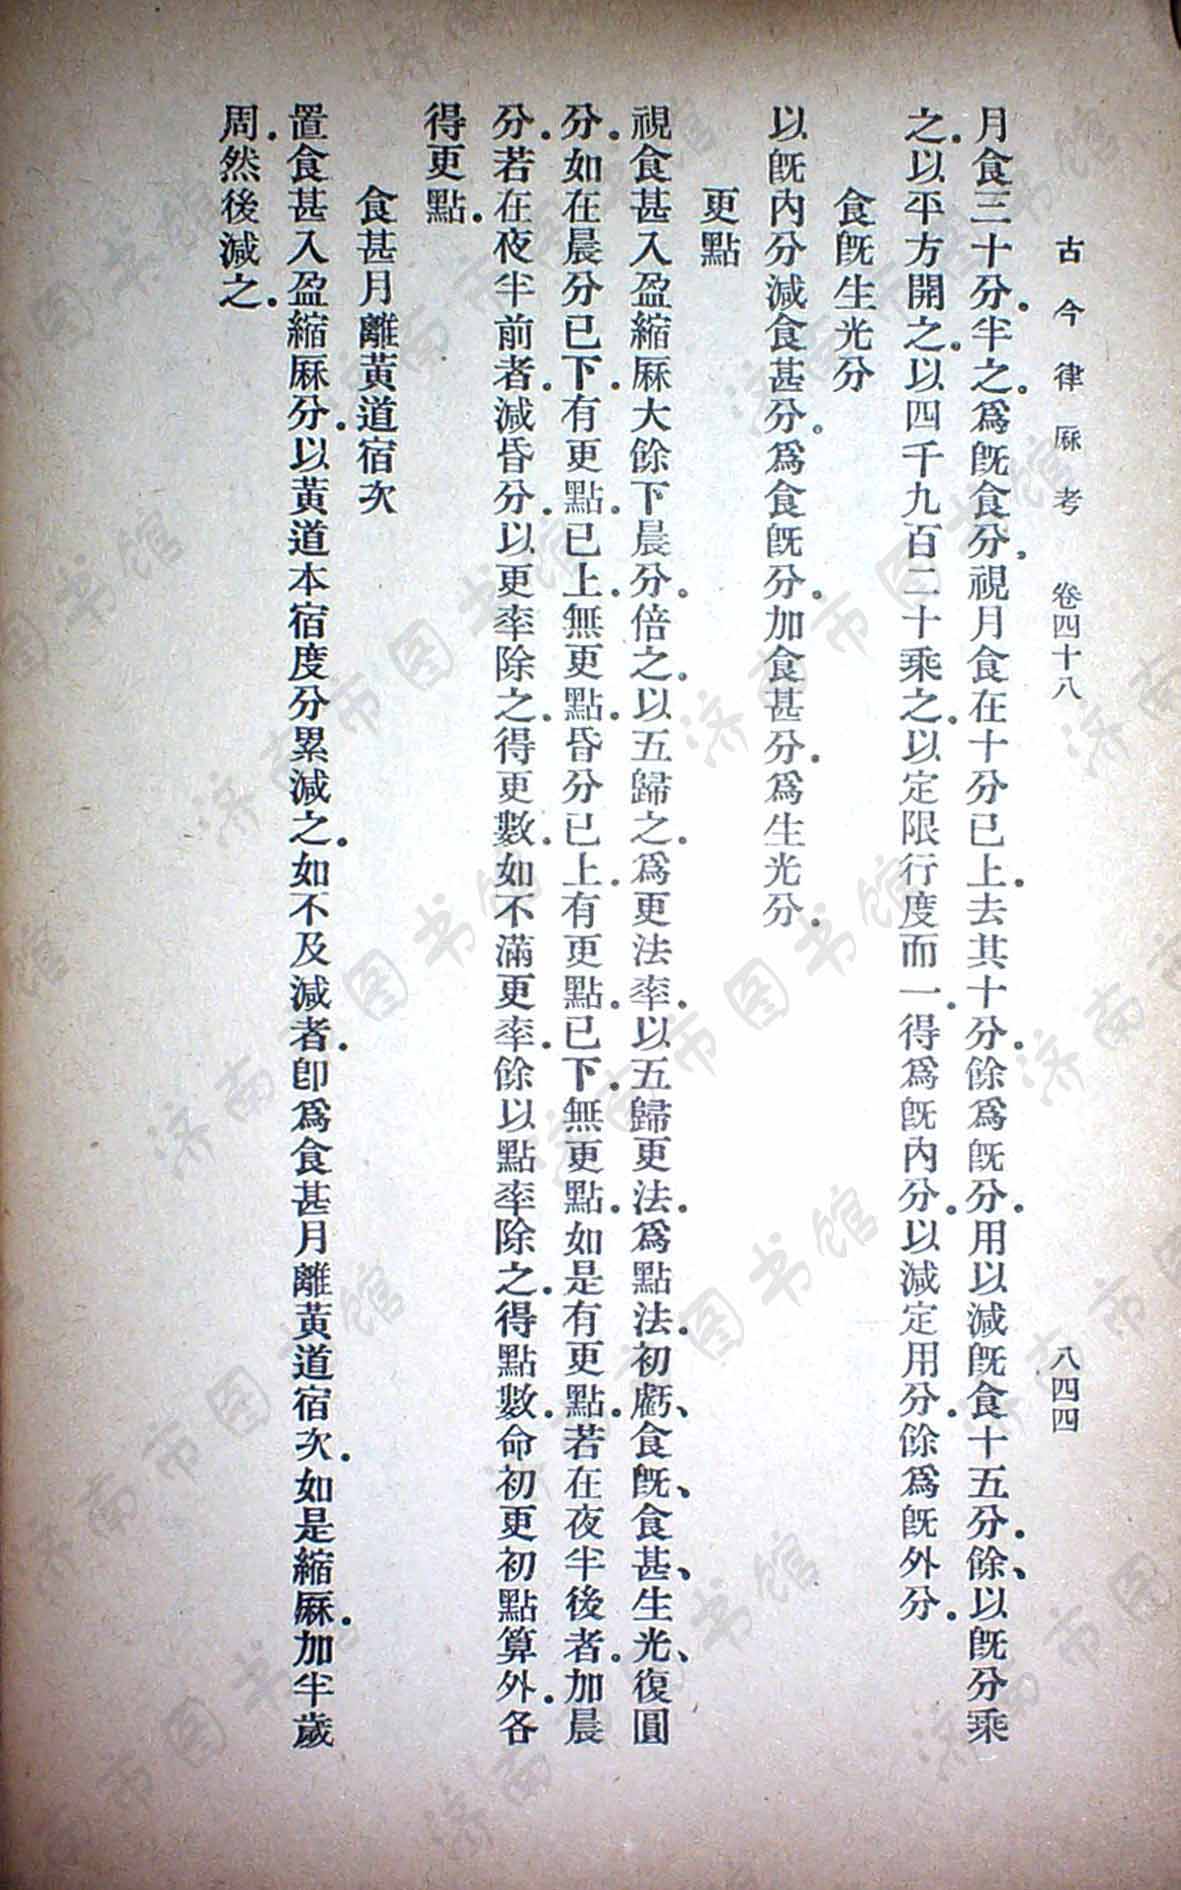 古今律厤考 卷四十八 八四四
月食三十分半之爲旣食分視月食在十分已上去其十分餘爲旣分用以減旣食十五分餘以旣分乘
之以平方開之以四千九百二十乘之以定限行度而一得爲旣內分以減定用分餘爲旣外分
食旣生光分
以旣內分減食甚分爲食旣分加食甚分爲生光分
更點
視食甚入盈縮厤大餘下晨分倍之以五歸之爲更法率以五歸更法爲點法初虧食旣食甚生光復圓
分如在晨分已下有更點已上無更點昏分已上有更點已下無更點如是有更點若在夜半後者加晨
分若在夜半前者減昏分以更率除之得更數如不滿更率餘以點率除之得點數命初更初點算外各
得更點
食甚月離黃道宿次
置食甚入盈縮厤分以黃道本宿度分累減之如不及減者卽爲食甚月離黃道宿次如是縮厤加半歲
周然後減之